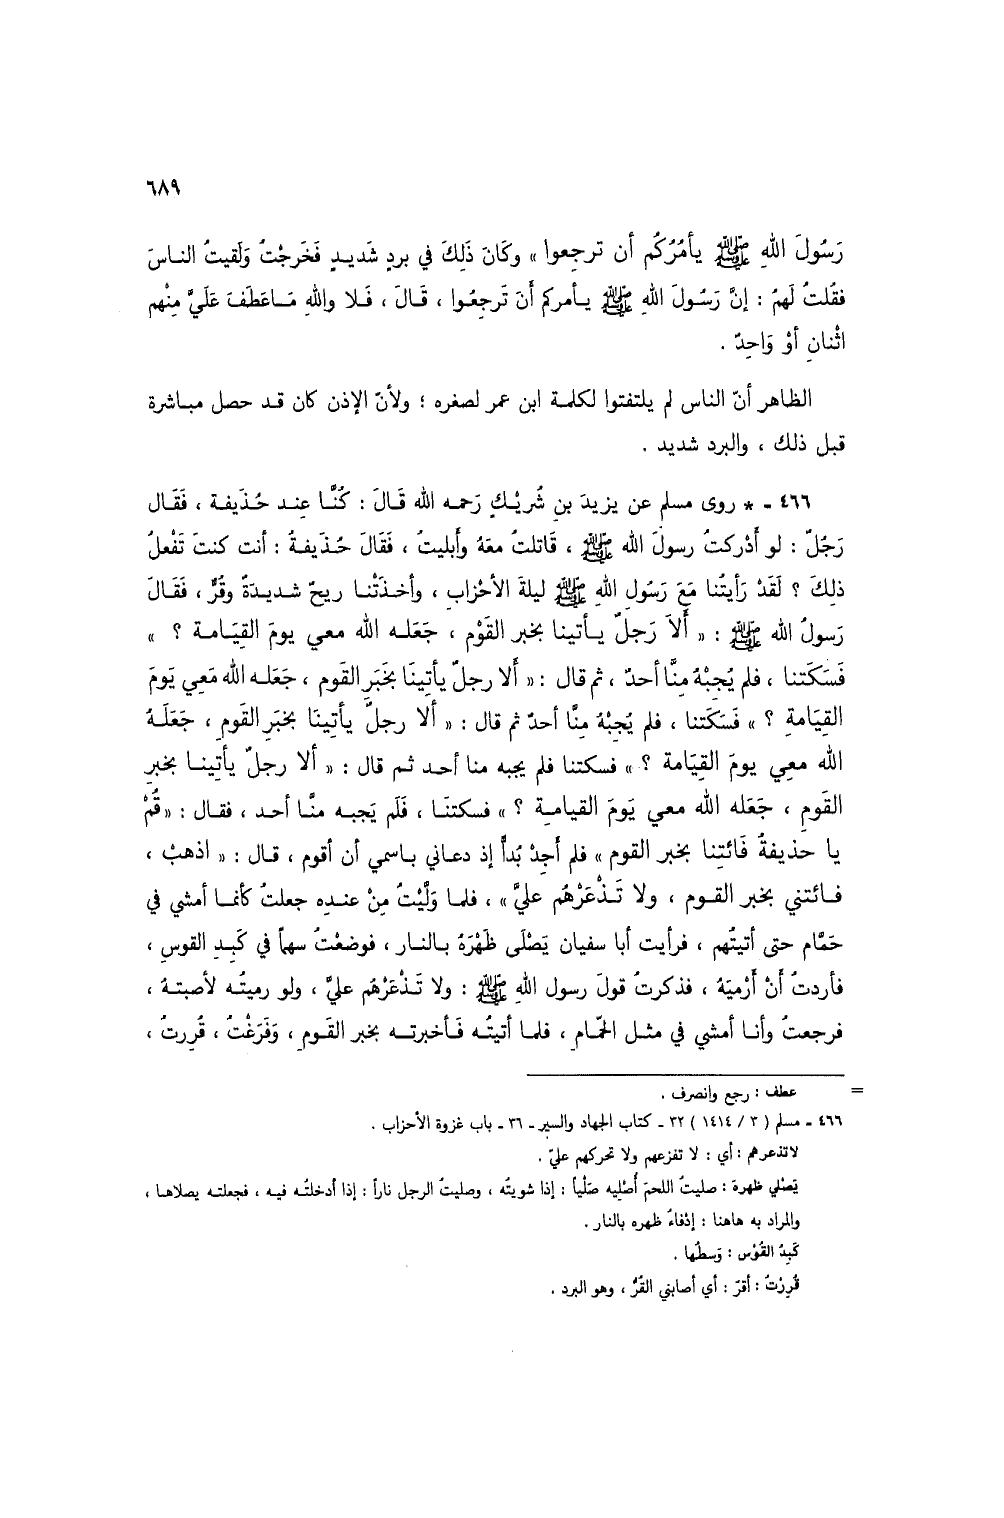 ٦٨٩
رَسُولَ اللهِ ﷺ يأمُرُكُم أن ترجعوا » وكَانَ ذَلِكَ في بردٍ شَديدٍ فَخَرجْتُ وَلَقيتُ الناسَ
فقُلتُ لَهمْ : إنَّ رَسُولَ اللهِ ﷺ يأمركم أَنَ تَرجعُوا ، قَالَ ، فَلا واللهِ مَاعَطَفَ عَلَيَّ مِنْهم
اثْنانِ أوْ وَاحِدٌ .
الظاهر أنّ الناس لم يلتفتوا لكلمة ابن عمر لصغره ؛ ولأنّ الإذن كان قد حصل مباشرة
قبل ذلك ، والبرد شديد .
٤٦٦ - * روى مسلم عن يزيدَ بنِ شُريْكٍ رَحمه الله قَالَ : كُنَّا عِند حُذَيفة ، فَقَال
رَجُلٌ : لو أَدْركتُ رسولَ الله ﷺ ، قَاتلتُ معَهُ وأَبليتُ ، فَقَالَ حُذَيفةُ : أنت كنتَ تَفْعلُ
ذلِكَ ؟ لَقَدْ رَأيتُنا مَعَ رَسُولِ اللهِ ﷺ ليلةَ الأحْزابِ ، وأخذَتْنا ريحٌ شديدَةٌ وقُرٌّ ، فَقَالَ
رَسولُ الله ﷺ : « أَلاَ رَجلٌ يأتينا بخبر القَوْم ، جَعَله الله معي يومَ القِيَامة ؟ »
فَسَكَتنا ، فلم يُجبْهُ مِنَّا أحدٌ ، ثم قال : « أَلا رجلٌ يأتينَا بخَبَرِ القَوم ، جَعَله الله مَعِي يَومَ
القِيَامةِ ؟ » فَسَكَتنا ، فلم يُجبْهُ مِنَّا أحدٌ ثم قال : « ألا رجلٌ يأتينَا بخبَرِ القَومِ ، جَعَلَهُ
الله معِي يومَ القِيَامة ؟ » فسكتنا فلم يجبه منا أحد ثم قال : « ألا رجلٌ يأتينا بخبرِ
القَومِ ، جَعَله الله معي يَومَ القيامة ؟ » فسكتنَا ، فَلَم يَجبه منَّا أحد ، فقال : « قُمْ
يا حذيفةُ فَائتِنا بخبر القوم » فلم أجِدْ بُداًّ إذ دعاني باسمي أن أقوم ، قال : « اذهبْ ،
فائتني بخبر القوم ، ولا تَذْعَرْهُم عليَّ » ، فلما وَلَّيْتُ مِنْ عنده جعلتُ كأنما أمشي في
حَمَّام حتى أتيتُهم ، فرأيت أبا سفيان يَصْلَى ظَهْرَهُ بالنار ، فوضعْتُ سهماً في كَبِدِ القوس ،
فأردتُ أَنْ أرْميَهُ ، فذكرتُ قولَ رسول اللهِ ﷺ : ولا تَذْعَرْهُم عليَّ ، ولو رميتُه لأصبتهُ ،
فرجعتُ وأنا أمشي في مثل الحَمَّامِ ، فلما أتيتُه فَأخبرته بخبر القَومِ ، وَفَرَغْتُ ، قُرِرتُ ،
= عطف : رجع وانصرف .
٤٦٦ - مسلم ( ٣ / ١٤١٤ ) ٣٢ - كتاب الجهاد والسير - ٣٦ - باب غزوة الأحزاب .
لاتذعرهم : أي : لا تفزعهم ولا تحركهم عليّ .
يَصْلي ظهرهَ : صليتُ اللحمَ أَصْلِيه صَلْياً : إذا شويتُه ، وصليتُ الرجل ناراً : إذا أدخلتُه فيه ، فجعلته يصلاها ،
والمراد به هاهنا : إدْفاءُ ظهره بالنار .
كَبِدُ القَوْس : وَسطُها .
قُرِرْتُ : أقرّ : أي أصابني القُرُّ ، وهو البرد .